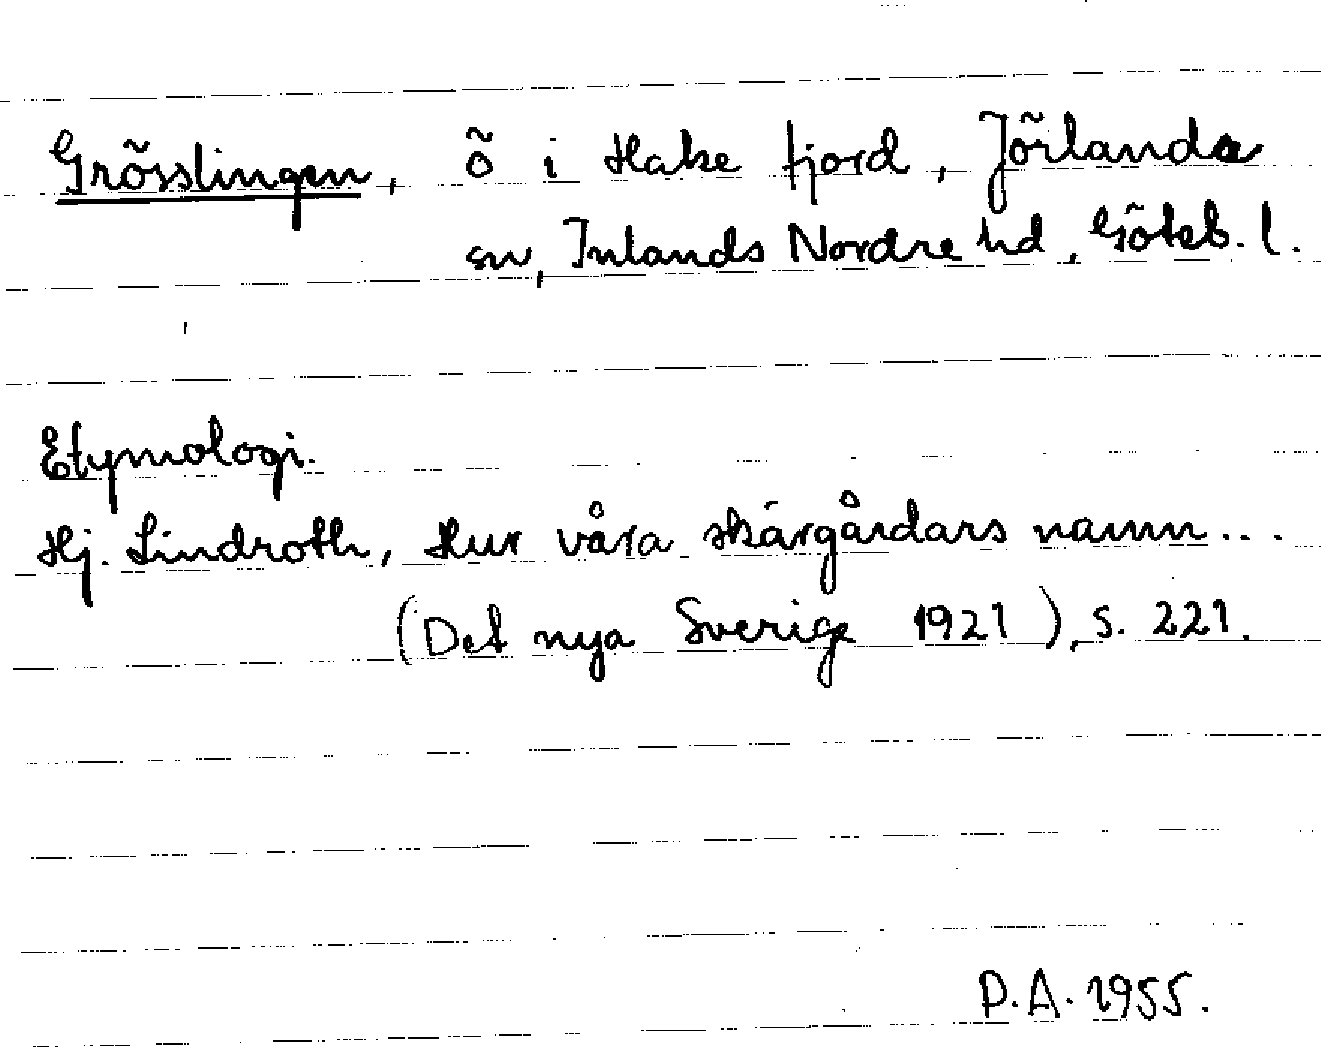 Grösslingen, ö i Hake fjord, Jörlanda
sn, Inlands Nordre hd, Göteb. l.
Etymologi.
Hj. Lindroth, Hur våra skärgårdars namn...
(Det nya Sverige 1921), s. 221.
P.A. 1955.